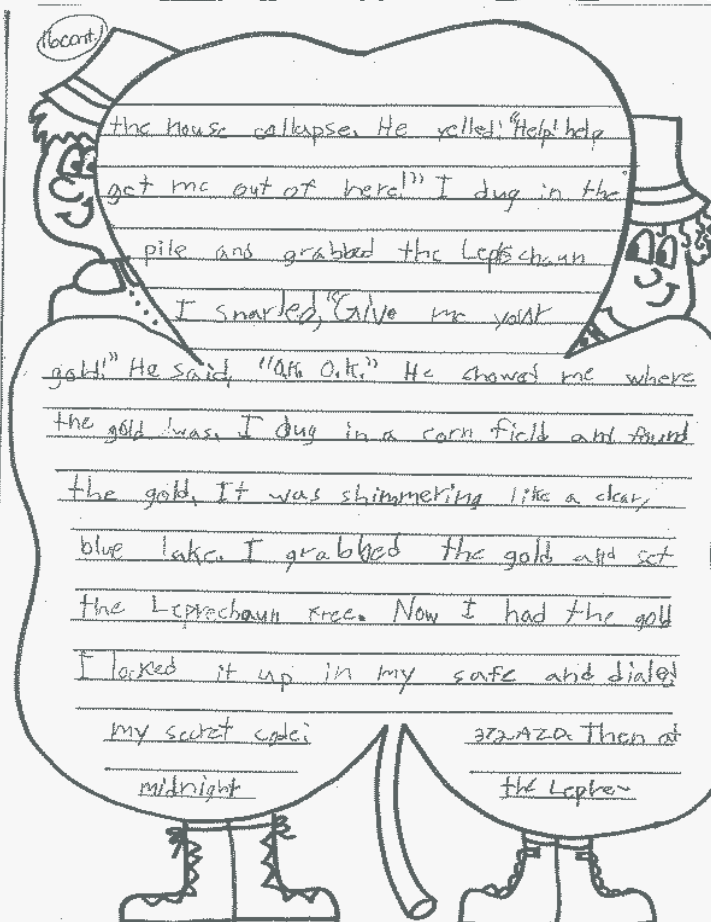 16cont.
the house collapse. He yelled! "Help! help
get me out of here!" I dug in the
pile and grabbed the Leprechaun
I snarled, "Give me your
gold!" He said, "Ah. O.K." He showed me where
the gold was. I dug in a corn field and found
the gold. It was shimmering like a clear,
blue lake. I grabbed the gold and set
the Leprechaun free. Now I had the gold
I locked it up in my safe and dialed
my secret code: Then at
midnight the Lepre~